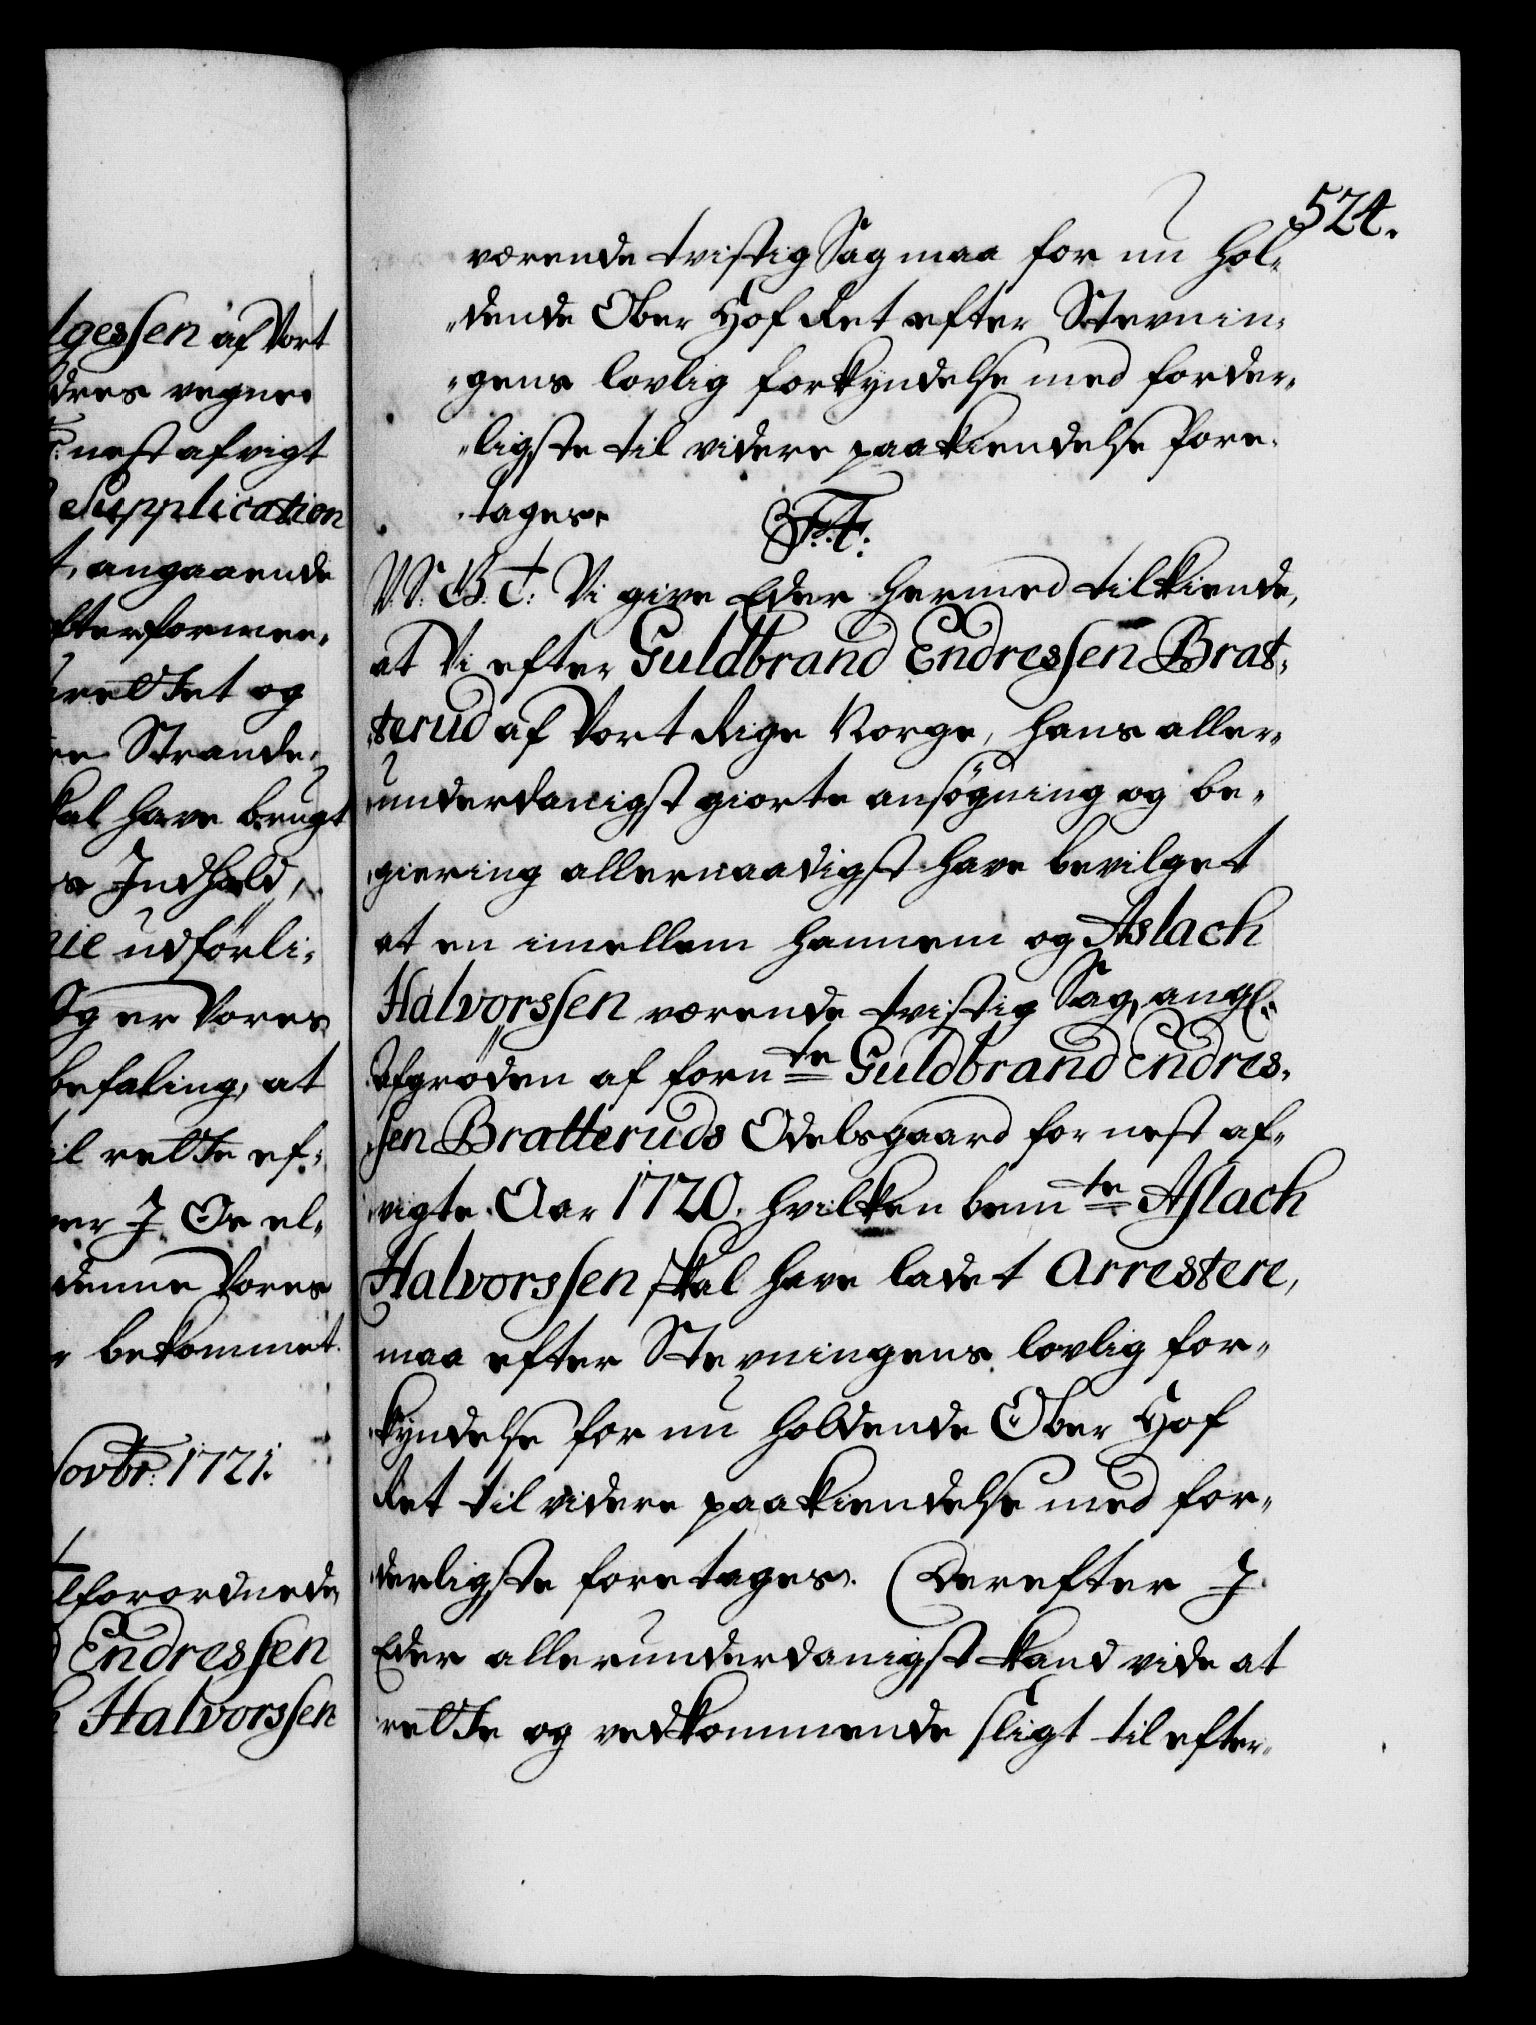 tgessen af Vort
dres vegne
nest afvigt
Supplication
t, angaaende
efterformee„
rettet og
re Strande„
kal have brugt
s Indhold,
nie udförli„
Og er Vores
befaling, at
til rette ef„
ver I. Os el„
denne Vores
r bekommet.
Novbr: 1721.
lforordnede
Endressen
Halvorssen
524.
værende tvistig Sag maa for nu hol„
„dende Ober Hof Ret efter Stevnin„
„gens lovlig forkyndelse med forder„
„ligste til videre paakiendelse fore„
„tages.
V. S. G. T: Vi give Eder hermed tilkiende,
at Vi efter Guldbrand Endressen Brat„
„terud af Vort Rige Norge, hans aller„
„underdanigst giorte ansögning og be„
„giering allernaadigst have bevilget
at en imellem hannem og Aslach
Halvorssen værende tvistig Sag, angl.
Afgröden af fornte Guldbrand Endres„
„sen Bratteruds Odelsgaard for nest af„
„vigte Aar 1720. hvilken bemte Aslach
Halvorssen skal have ladet Arrestere,
maa efter Stevningens lovlig for„
„kyndelse for nu holdende Ober Hof
Ret til videre paakiendelse med for„
„derligste foretages. Derefter I
Eder allerunderdanigst kand vide at
rette og vedkommende sligt til efter„